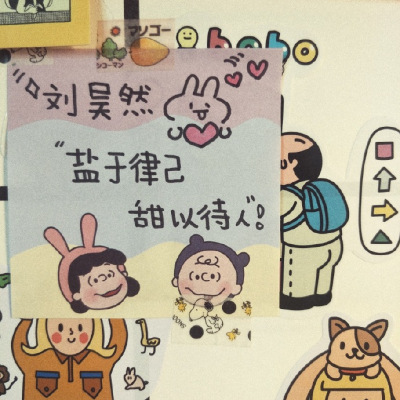 マンゴー
シコーマン
bobo
刘昊然
"盐于律己
甜以待人"。